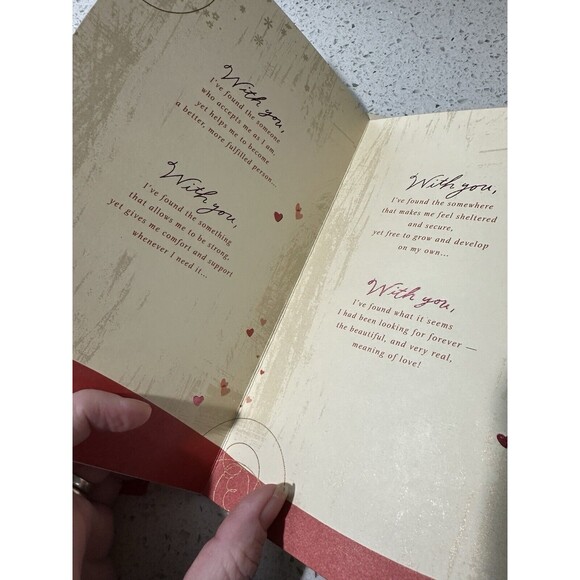 With you,
I've found the someone
who accepts me as I am,
yet helps me to become
a better, more fulfilled person...
With you,
I've found the something
that allows me to be strong,
yet gives me comfort and support
whenever I need it...
With you,
I've found the somewhere
that makes me feel sheltered
and secure,
yet free to grow and develop
on my own...
With you,
I've found what it seems
I had been looking for forever —
the beautiful, and very real,
meaning of love!